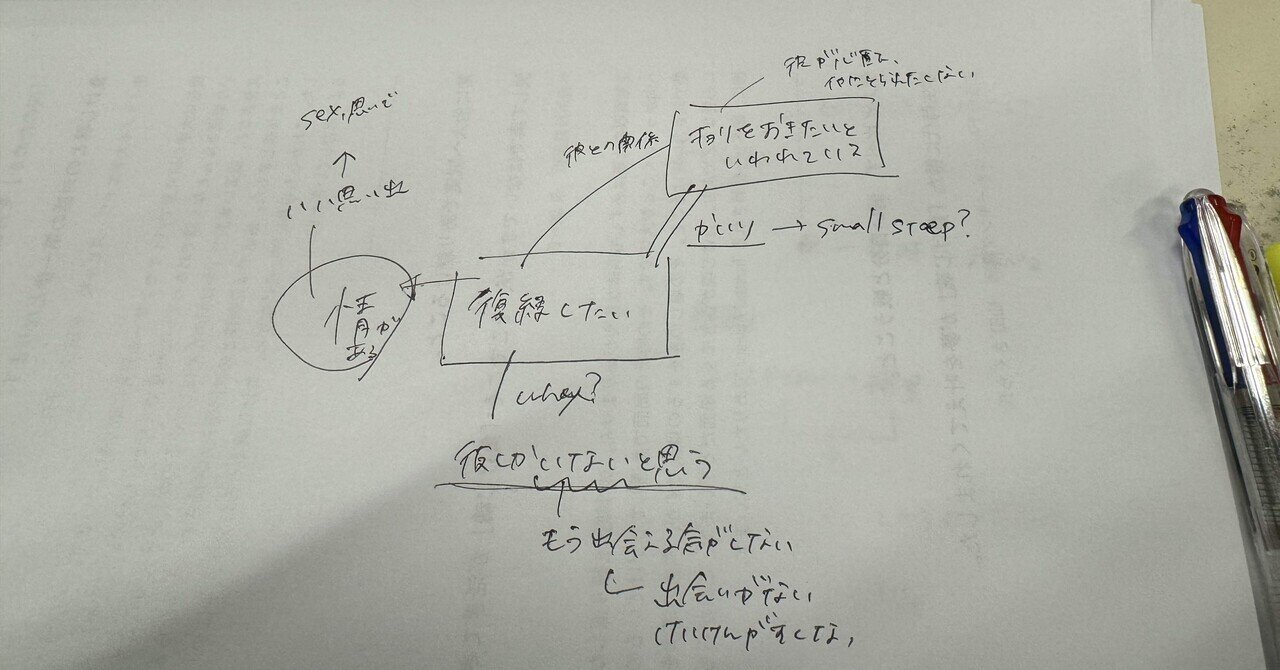 彼が心配で、
他にとられたくない
sex,思いで
キョリをおきたいと
いわれている
彼との関係
↑
いい思い出
かいり → small steep?
情が
ある
復縁したい
whey?
彼しかいないと思う
もう出会える気がしない
出会いがない
けいけんがすくな